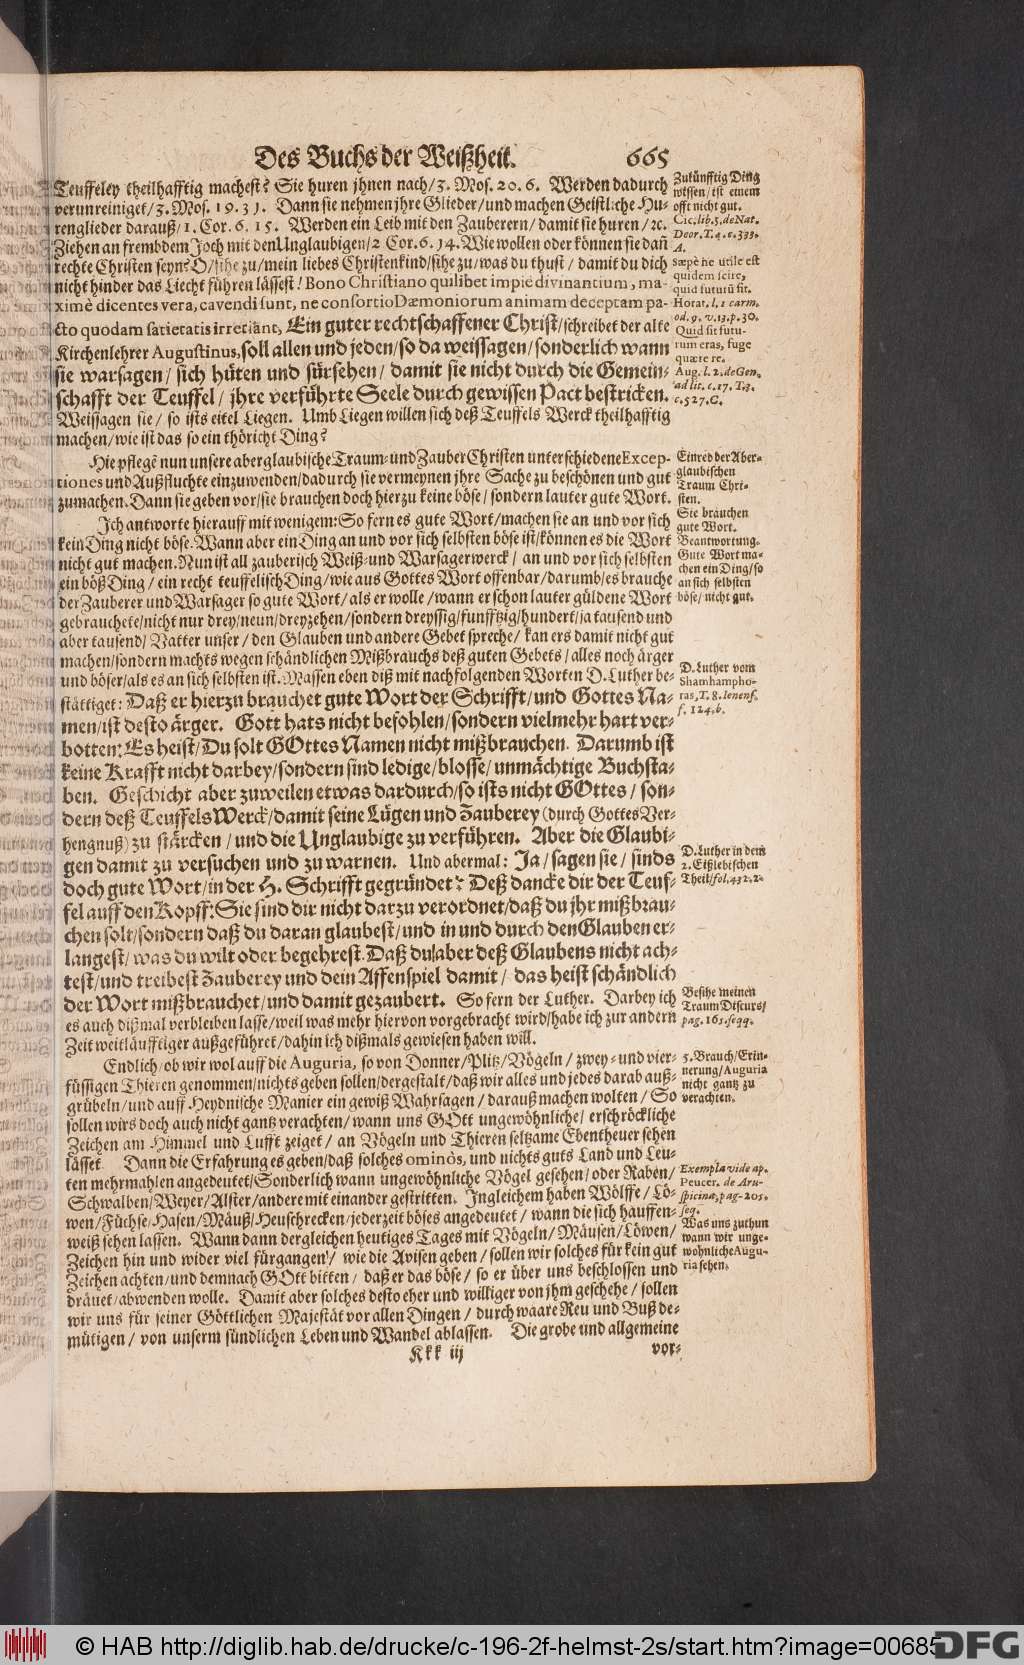 Des Buchs der Weißheit. 665
Teuffeley theilhafftig machest? Sie huren jhnen nach/3. Mos. 20. 6. Werden dadurch
verunreiniget/3. Mos. 19. 31. Dann sie nehmen jhre Glieder/und machen Geistliche Hu-
renglieder darauß/1. Cor. 6. 15. Werden ein Leib mit den Zauberern/damit sie huren/ꝛc.
Ziehen an frembdem Joch mit den Unglaubigen/2 Cor. 6. 14. Wie wollen oder können sie dañ
rechte Christen seyn? O/sihe zu/mein liebes Christenkind/sihe zu/was du thust/damit du dich
nicht hinder das Liecht führen lässest! Bono Christiano quilibet impiè divinantium, ma-
ximè dicentes vera, cavendi sunt, ne consortio Dæmoniorum animam deceptam pa-
cto quodam satietatis irretiãnt, Ein guter rechtschaffener Christ/schreibet der alte
Kirchenlehrer Augustinus, soll allen und jeden/so da weissagen/sonderlich wann
sie warsagen/sich hüten und fürsehen/damit sie nicht durch die Gemein-
schafft der Teuffel/jhre verführte Seele durch gewissen Pact bestricken.
Weissagen sie/so ists eitel Liegen. Umb Liegen willen sich deß Teuffels Werck theilhafftig
machen/wie ist das so ein thöricht Ding?
Hie pflegẽ nun unsere aberglaubische Traum- und Zauber Christen unterschiedene Excep-
tiones und Außfluchte einzuwenden/dadurch sie vermeynen jhre Sache zu beschönen und gut
zumachen. Dann sie geben vor/sie brauchen doch hierzu keine böse/sondern lauter gute Wort.
Ich antworte hierauff mit wenigem: So fern es gute Wort/machen sie an und vor sich
kein Ding nicht böse. Wann aber ein Ding an und vor sich selbsten böse ist/können es die Wort
nicht gut machen. Nun ist all zauberisch Weiß- und Warsagerwerck/an und vor sich selbsten
ein böß Ding/ein recht teuffelisch Ding/wie aus Gottes Wort offenbar/darumb/es brauche
der Zauberer und Warsager so gute Wort/als er wolle/wann er schon lauter güldene Wort
gebrauchete/nicht nur drey/neun/dreyzehen/sondern dreyssig/funfftzig/hundert/ja tausend und
aber tausend/Vatter unser/den Glauben und andere Gebet spreche/kan ers damit nicht gut
machen/sondern machts wegen schändlichen Mißbrauchs deß guten Gebets/alles noch ärger
und böser/als es an sich selbsten ist. Massen eben diß mit nachfolgenden Worten D. Luther be-
stättiget: Daß er hierzu brauchet gute Wort der Schrifft/und Gottes Na-
men/ist desto ärger. Gott hats nicht befohlen/sondern vielmehr hart ver-
botten: Es heist/Du solt GOttes Namen nicht mißbrauchen. Darumb ist
keine Krafft nicht darbey/sondern sind ledige/blosse/unmächtige Buchsta-
ben. Geschicht aber zuweilen etwas dardurch/so ists nicht GOttes/son-
dern deß Teuffels Werck/damit seine Lügen und Zauberey (durch Gottes Ver-
hengnuß) zu stärcken/und die Unglaubige zu verführen. Aber die Glaubi-
gen damit zu versuchen und zu warnen. Und abermal: Ja/sagen sie/sinds
doch gute Wort/in der H. Schrifft gegründet? Deß dancke dir der Teuf-
fel auff den Kopff: Sie sind dir nicht darzu verordnet/daß du jhr mißbrau-
chen solt/sondern daß du daran glaubest/und in und durch den Glauben er-
langest/was du wilt oder begehrest. Daß du aber deß Glaubens nicht ach-
test/und treibest Zauberey und dein Affenspiel damit/das heist schändlich
der Wort mißbrauchet/und damit gezaubert. So fern der Luther. Darbey ich
es auch dißmal verbleiben lasse/weil was mehr hiervon vorgebracht wird/habe ich zur andern
Zeit weitläufftiger außgeführet/dahin ich dißmals gewiesen haben will.
Endlich/ob wir wol auff die Auguria, so von Donner/Plitz/Vögeln/zwey- und vier-
füssigen Thieren genommen/nichts geben sollen/dergestalt/daß wir alles und jedes darab auß-
grübeln/und auff Heydnische Manier ein gewiß Wahrsagen/darauß machen wolten/So
sollen wirs doch auch nicht gantz verachten/wann uns GOtt ungewöhnliche/erschröckliche
Zeichen am Himmel und Lufft zeiget/an Vögeln und Thieren seltzame Ebentheuer sehen
lässet Dann die Erfahrung es geben/daß solches ominòs, und nichts guts Land und Leu-
ten mehrmahlen angedeutet/Sonderlich wann ungewöhnliche Vögel gesehen/oder Raben/
Schwalben/Weyer/Alster/andere mit einander gestritten. Ingleichem haben Wölffe/Lö-
wen/Füchse/Hasen/Mäuß/Heuschrecken/jederzeit böses angedeutet/wann die sich hauffen-
weiß sehen lassen. Wann dann dergleichen heutiges Tages mit Vögeln/Mäusen/Löwen/
Zeichen hin und wider viel fürgangen/wie die Avisen geben/sollen wir solches für kein gut
Zeichen achten/und demnach GOtt bitten/daß er das böse/so er über uns beschlossen und
dräuet/abwenden wolle. Damit aber solches desto eher und williger von jhm geschehe/sollen
wir uns für seiner Göttlichen Majestät vor allen Dingen/durch waare Reu und Buß de-
mütigen/von unserm sündlichen Leben und Wandel ablassen. Die grobe und allgemeine
Kkk iij vor-
Zukünfftig Ding
wissen/ist einem
offt nicht gut.
Cic. lib. 3. de Nat.
Deor. T. 4. c. 333.
A.
sæpè ne utile est
quidem scire,
quid futurũ sit.
Horat. l. 1 carm.
od. 9. v. 13. p. 30.
Quid sit futu-
rum cras, fuge
quære re.
Aug. l. 2. de Gen.
ad lit. c. 17. T. 3.
c. 527. C.
Einred der Aber-
glaubischen
Traum Chri-
sten.
Sie brauchen
gute Wort.
Beantwortung.
Gute Wort ma-
chen ein Ding/so
an sich selbsten
böse/nicht gut.
D. Luther vom
Shamhampho-
ras, T. 8. Ienens.
f. 124. b.
D. Luther in dem
2. Eißlebischen
Theil/fol. 432. 2.
Besihe meinen
Traum Discurs/
pag. 161. seqq.
5. Brauch/Erin-
nerung/Auguria
nicht gantz zu
verachten.
Exempla vide ap.
Peucer. de Aru-
spicina, pag. 205.
seq.
Was uns zu thun
wann wir unge-
wöhnliche Augu-
ria sehen.
© HAB http://diglib.hab.de/drucke/c-196-2f-helmst-2s/start.htm?image=00685
DFG